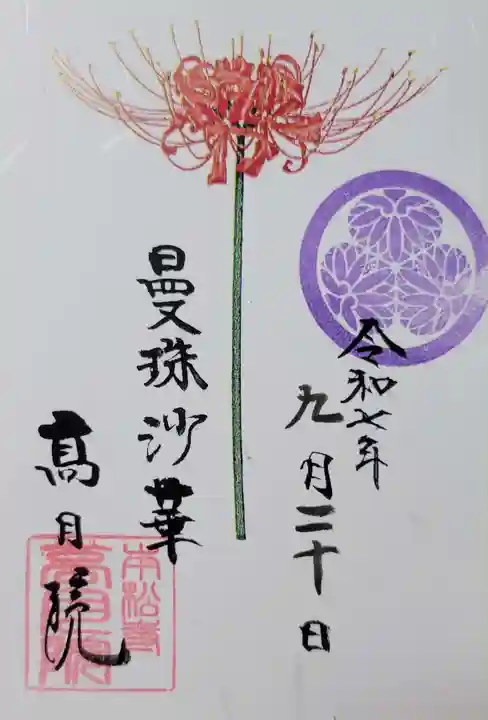 令和七年
九月二十日
曼珠沙華
高月院